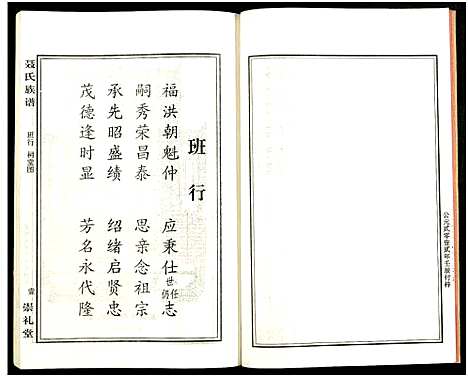 公元贰零壹贰年壬辰付梓
班行
福洪朝魁仲 应秉仕世任仍志
嗣秀荣昌泰 思亲念祖宗
承先昭盛绩 绍绪启贤忠
茂德逢时显 芳名永代隆
聂氏族谱
班行 祠堂图
壹
崇礼堂